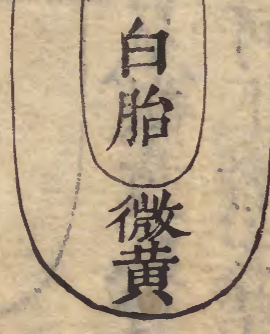 白胎
微黄